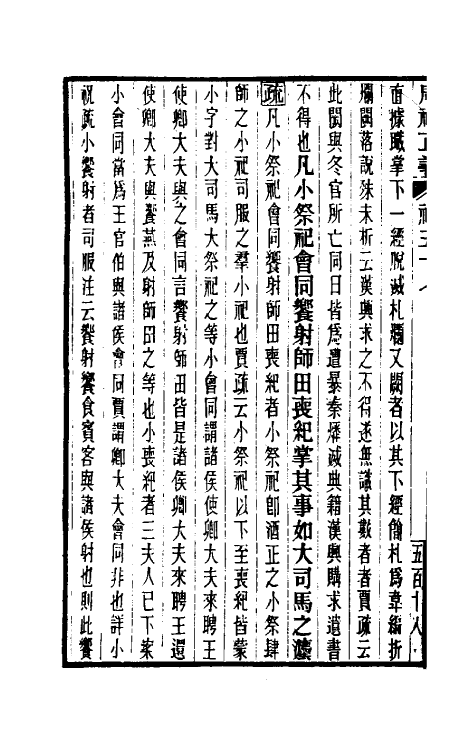 面據職掌下一經脫滅札爛又闕者以其下經簡札爲韋編折
爛闕落說殊未析云漢興求之不得遂無識其數者者賈疏云
此闕與冬官所亡同日皆爲遭暴秦燔滅典籍漢興購求遺書
不得也凡小祭祀會同饗射師田喪紀掌其事如大司馬之灋
疏凡小祭祀會同饗射師田喪紀者小祭祀卽酒正之小祭肆
師之小祀司服之羣小祀也賈疏云小祭祀以下至喪紀皆蒙
小字對大司馬大祭祀之等小會同謂諸侯使卿大夫來聘王
使卿大夫與之會同言饗射師田皆是諸侯卿大夫來聘王還
使卿大夫與饗燕及射師田之等也小喪紀者三夫人已下案
小會同當爲王官伯與諸侯會同賈謂卿大夫會同非也詳小
祝疏小饗射者司服注云饗射饗食賓客與諸侯射也則此饗
五百十八